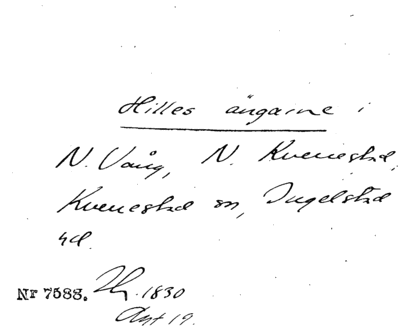 Hilles ängarne i
N. Vång, N. Kvenestad,
Kvenestad sn, Ingelstad
hd.
Nr 7588. 1830
Akt 19.